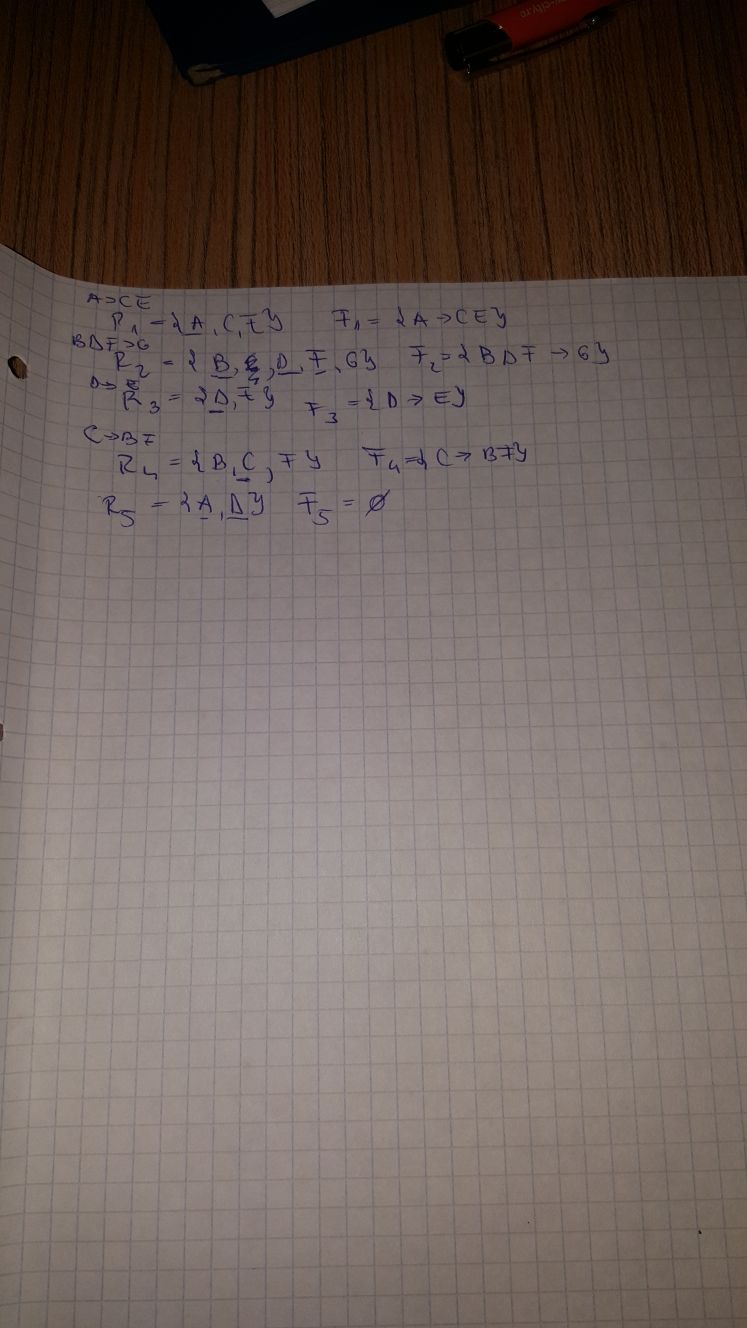 w-city.ro
A→CE
R1 = {A, C, F} F1 = {A → CE}
BDF→G
R2 = {B, D, F, G} F2 = {BDF → G}
D→E
R3 = {D, F} F3 = {D → E}
C→BF
R4 = {B, C, F} F4 = {C → BF}
R5 = {A, D} F5 = ∅